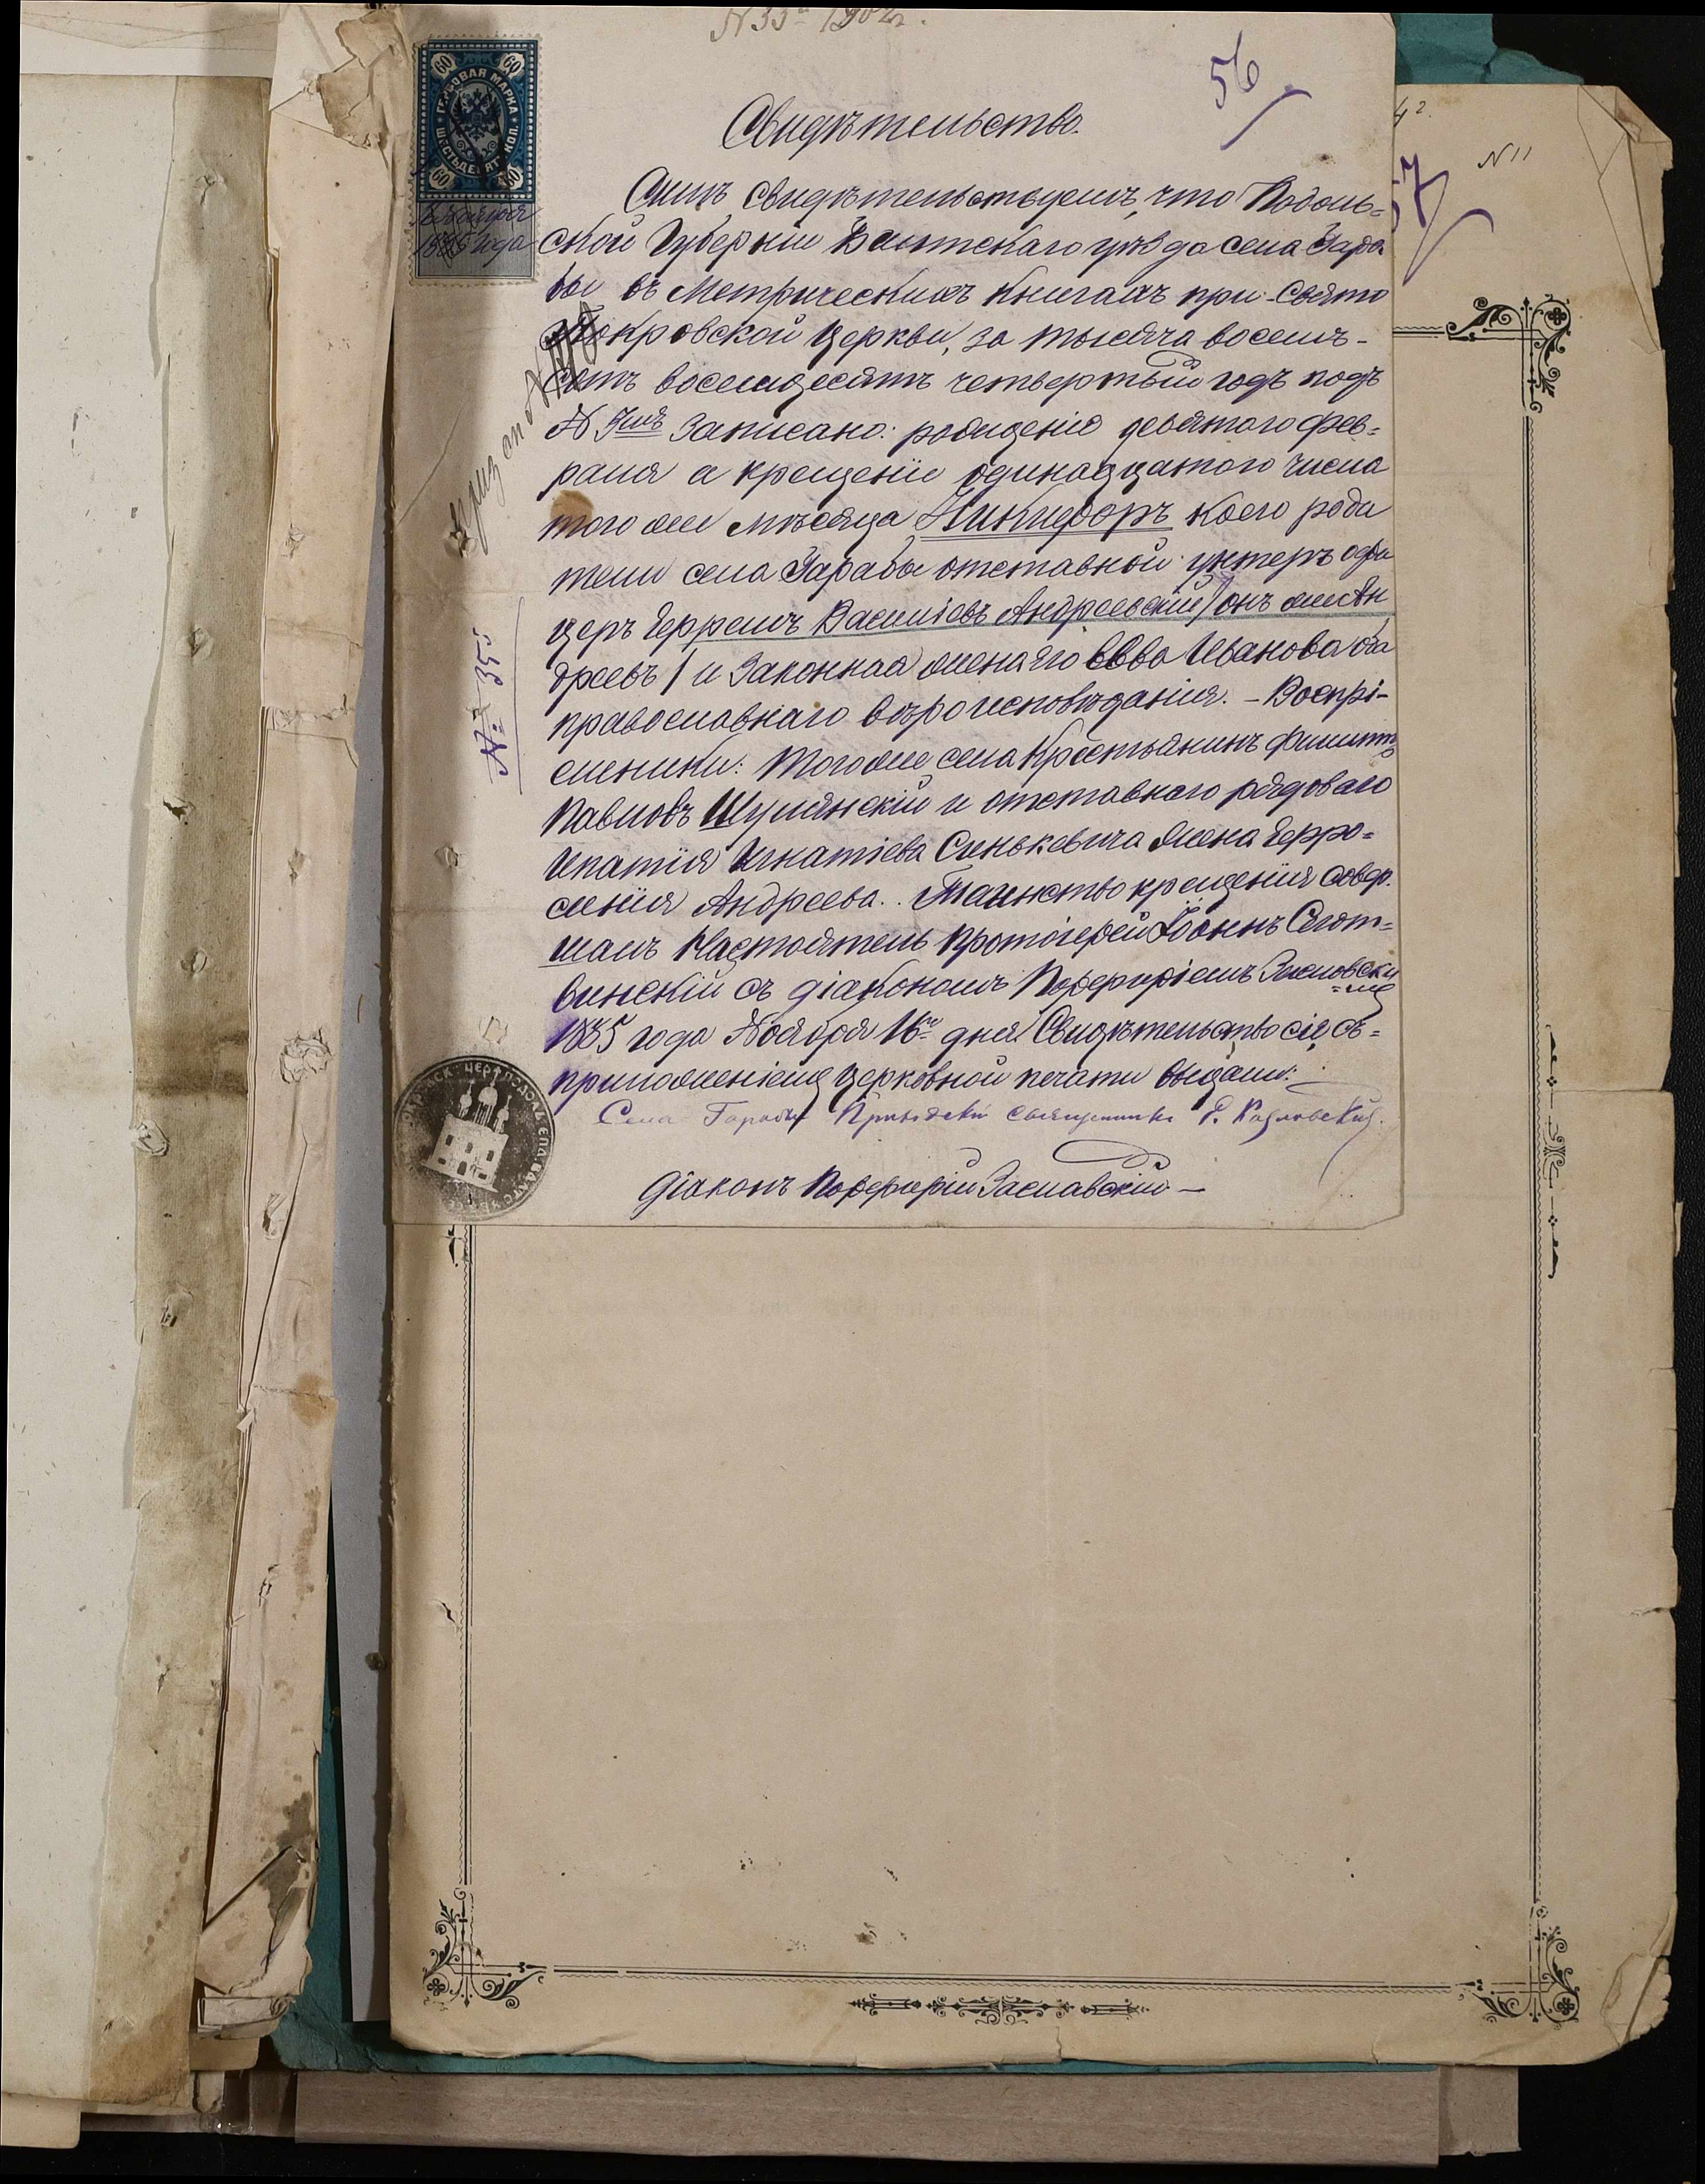 N 33 1902 г.
56
ГЕРБОВАЯ МАРКА
ШЕСТЬДЕСЯТ КОП.
60 60
60 60
Ноября
1885 года
N 11
57
Свидѣтельство.
Симъ свидѣтельствуемъ, что Подоль=
ской Губерніи Балтскаго уѣзда села Гара
бы въ Метрическихъ книгахъ при Свято
Покровской Церкви, за тысяча восемь-
сотъ восемдесятъ четвертый годъ подъ
N 7мъ записано: рожденіе девятого фев=
раля а крещеніи одинадцатого числа
того же мѣсяца Никифоръ коего роди
тели села Гарабы отставной унтеръ офи
церъ Ефремъ Василіевъ Андреевскій / онъ же Ан
дреевъ / и Законная жена его Евва Иванова оба
православнаго вѣроисповѣданія. - Воспрі-
емники: Того же села Крестьянинъ Филиппъ
Павловъ Шумянскій и отставнаго рядоваго
Ипатія Игнатіева Синькевича жена Ефро=
синія Андреева. Таинство крещенія совер
шалъ Настоятель Протоіерей Іоаннъ Сѣгот=
винскій съ діакономъ Порфиріемъ Заславски
=мъ
1885 года Ноября 16го дня Свидѣтельство сіе съ=
приложеніемъ церковной печати выдали:
Села Гарабы Приходскій священникъ Р. Козловскій.
Діаконъ Порфирій Заславскій —
N 35